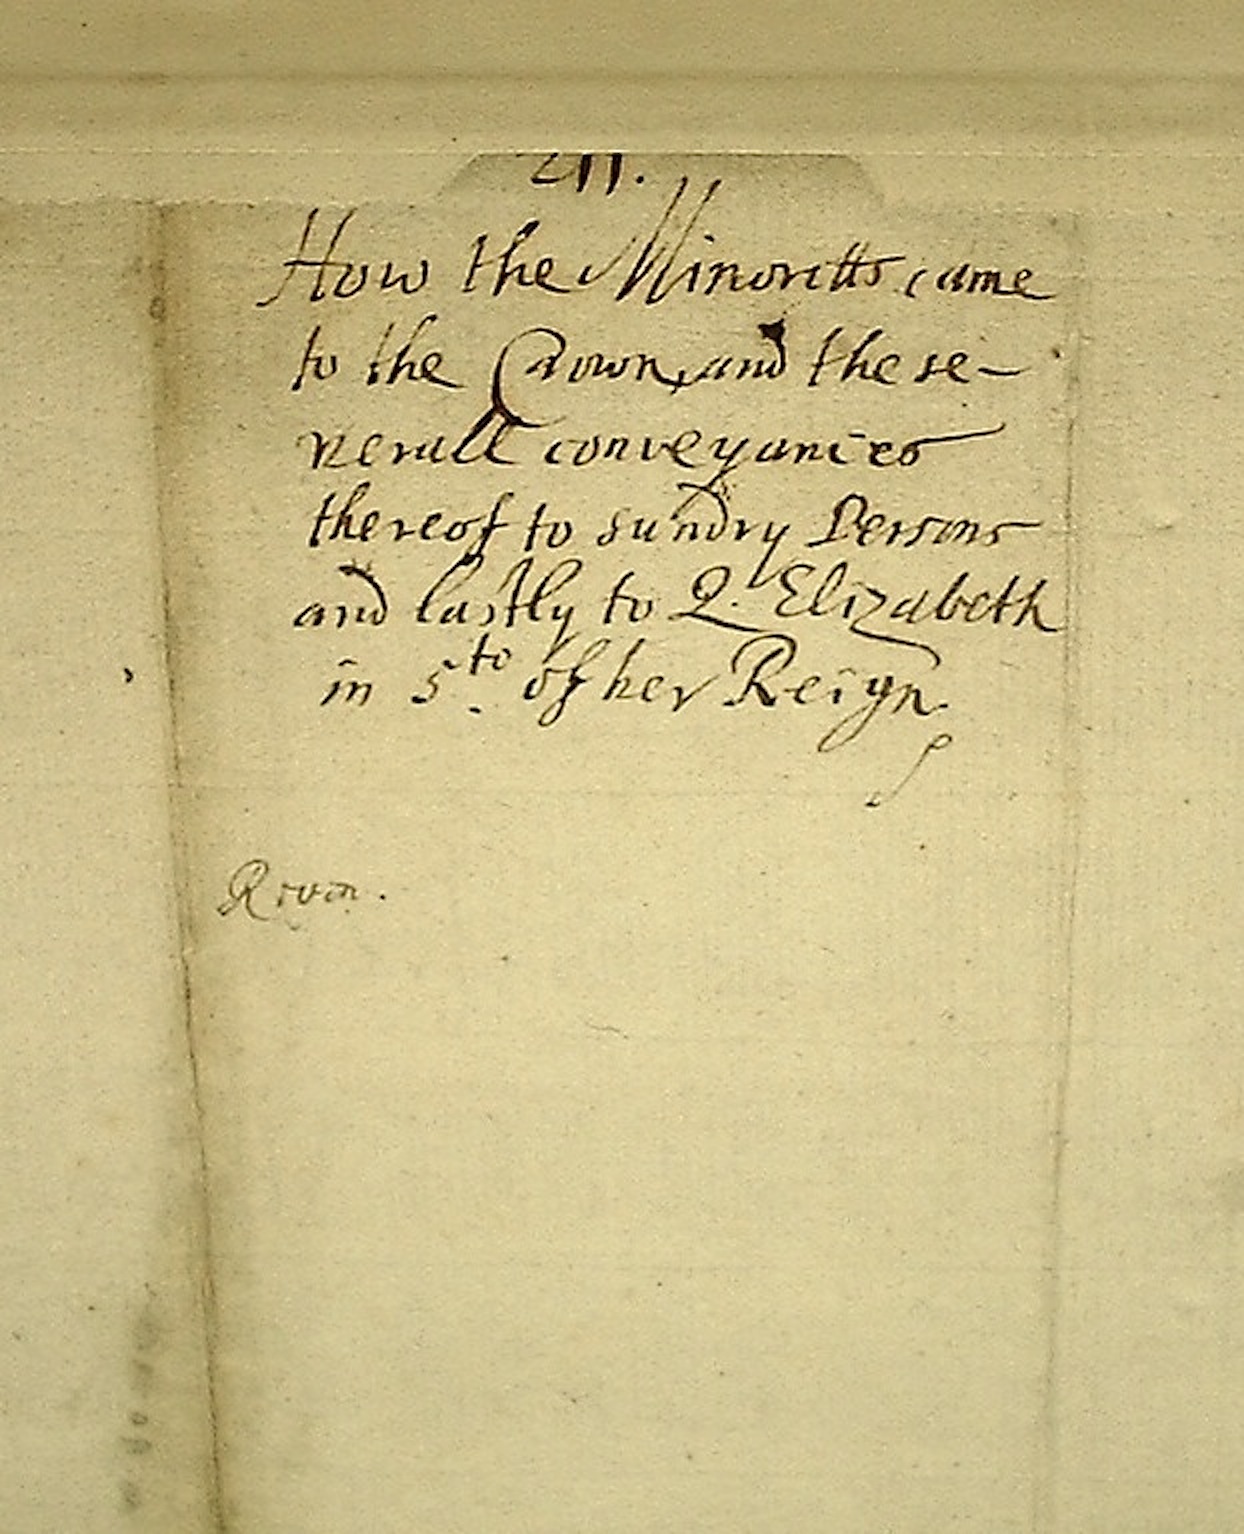 How the Minoritts came
to the Crown, and the se-
verall conveyances
thereof to sundry Persons
and lastly to Q. Elizabeth
in 5.to of her Reign.